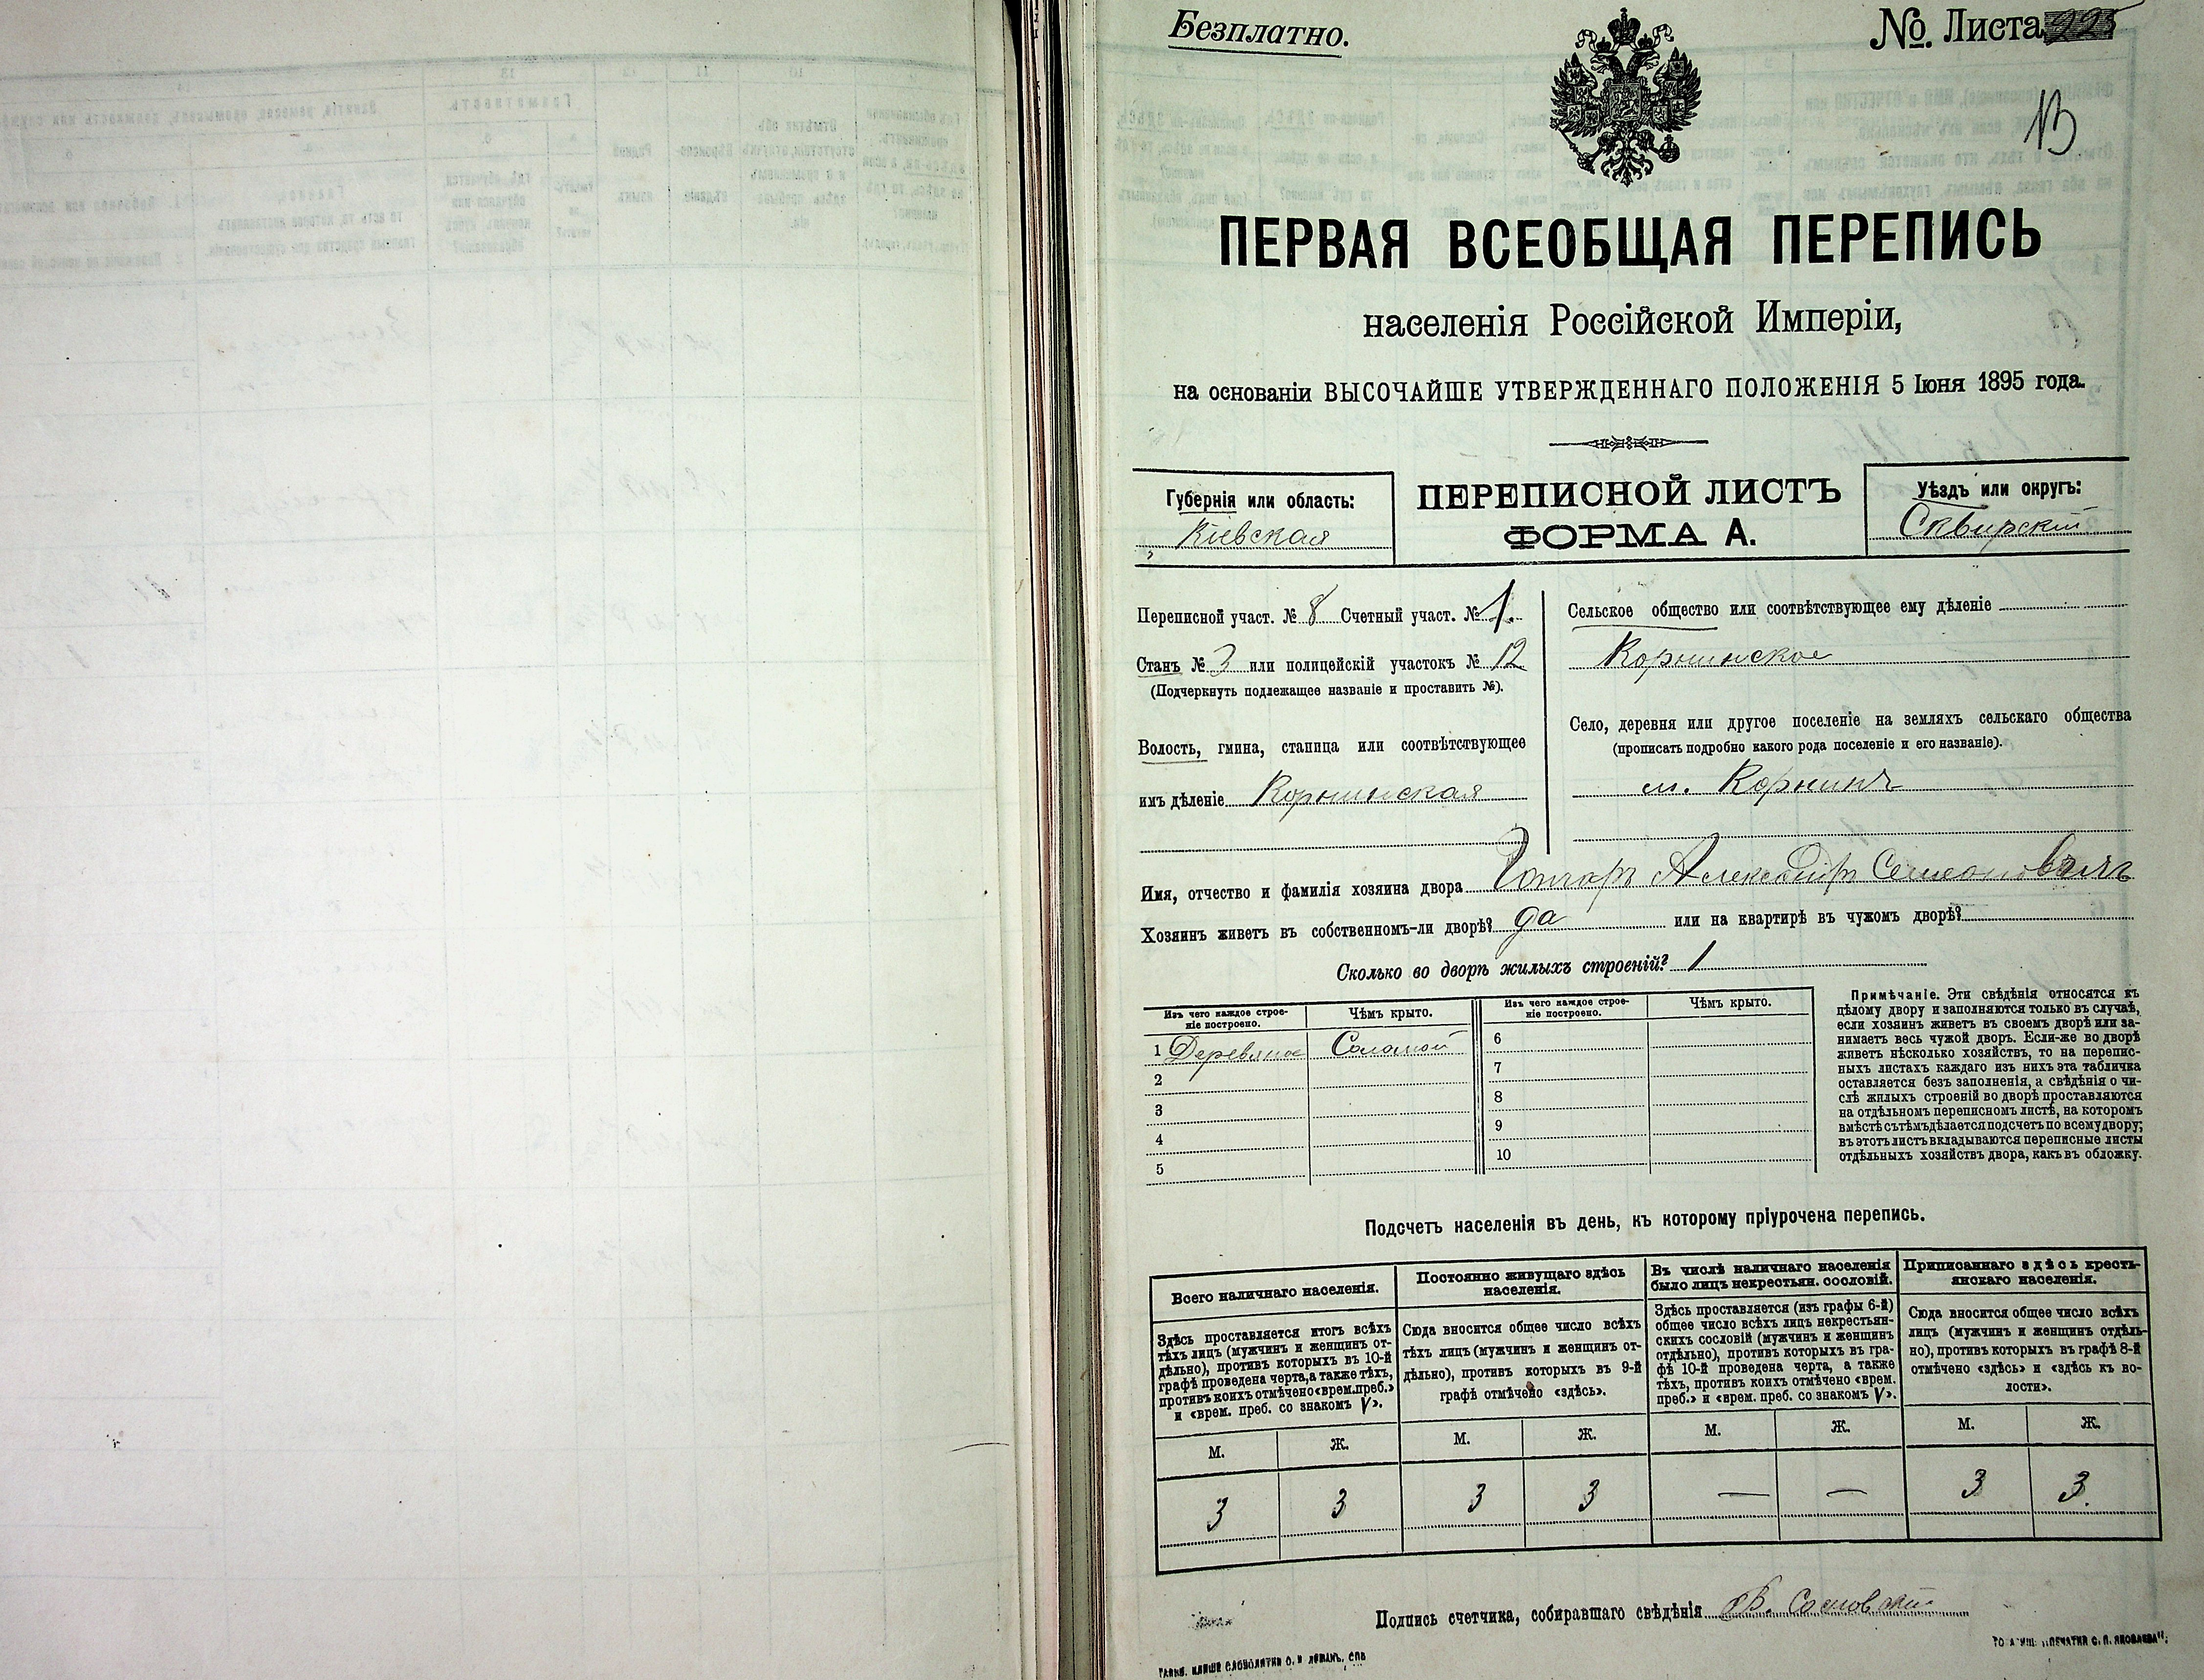 Безплатно.
№. Листа 225
13
ПЕРВАЯ ВСЕОБЩАЯ ПЕРЕПИСЬ
населенія Россійской Имперіи,
на основаніи ВЫСОЧАЙШЕ УТВЕРЖДЕННАГО ПОЛОЖЕНІЯ 5 Іюня 1895 года.
Губернія или область:
Кіевская
ПЕРЕПИСНОЙ ЛИСТЪ
ФОРМА А.
Уѣздъ или округъ:
Сквирскій
Переписной участ. № 8 Счетный участ. № 1.
Станъ № 3 или полицейскій участокъ № 12
(Подчеркнуть подлежащее названіе и проставить №).
Волость, гмина, станица или соотвѣтствующее
имъ дѣленіе Корнинская
Сельское общество или соотвѣтствующее ему дѣленіе
Корнинское
Село, деревня или другое поселеніе на земляхъ сельскаго общества
(прописать подробно какого рода поселеніе и его названіе).
м. Корнинъ
Имя, отчество и фамилія хозяина двора Гончаръ Александръ Семеоновъ
Хозяинъ живетъ въ собственномъ-ли дворѣ? да или на квартирѣ въ чужомъ дворѣ?
Сколько во дворѣ жилыхъ строеній? 1
Изъ чего каждое строе-
ніе построено.
Чѣмъ крыто.
1 Деревяное Соломой
2
3
4
5
Изъ чего каждое строе-
ніе построено.
Чѣмъ крыто.
6
7
8
9
10
Примѣчаніе. Эти свѣдѣнія относятся къ
цѣлому двору и заполняются только въ случаѣ,
если хозяинъ живетъ въ своемъ дворѣ или за-
нимаетъ весь чужой дворъ. Если-же во дворѣ
живетъ нѣсколько хозяйствъ, то на перепис-
ныхъ листахъ каждаго изъ нихъ эта табличка
оставляется безъ заполненія, а свѣдѣнія о чи-
слѣ жилыхъ строеній во дворѣ проставляются
на отдѣльномъ переписномъ листѣ, на которомъ
вмѣстѣ съ тѣмъ дѣлается подсчетъ по всему двору;
въ этотъ листъ вкладываются переписные листы
отдѣльныхъ хозяйствъ двора, какъ въ обложку.
Подсчетъ населенія въ день, къ которому пріурочена перепись.
Всего наличнаго населенія.
Здѣсь проставляется итогъ всѣхъ
тѣхъ лицъ (мужчинъ и женщинъ от-
дѣльно), противъ которыхъ въ 10-й
графѣ проведена черта, а также тѣхъ,
противъ коихъ отмѣчено «врем. преб.»
и «врем. преб. со знакомъ V».
М. Ж.
3 3
Постоянно живущаго здѣсь
населенія.
Сюда вносится общее число всѣхъ
тѣхъ лицъ (мужчинъ и женщинъ от-
дѣльно), противъ которыхъ въ 9-й
графѣ отмѣчено «здѣсь».
М. Ж.
3 3
Въ числѣ наличнаго населенія
было лицъ некрестьян. сословій.
Здѣсь проставляется (изъ графы 6-й)
общее число всѣхъ лицъ некрестьян-
скихъ сословій (мужчинъ и женщинъ
отдѣльно), противъ которыхъ въ гра-
фѣ 10-й проведена черта, а также
тѣхъ, противъ коихъ отмѣчено «врем.
преб.» и «врем. преб. со знакомъ V».
М. Ж.
— —
Приписаннаго здѣсь кресть-
янскаго населенія.
Сюда вносится общее число всѣхъ
лицъ (мужчинъ и женщинъ отдѣль-
но), противъ которыхъ въ графѣ 8-й
отмѣчено «здѣсь» и «здѣсь къ во-
лости».
М. Ж.
3 3.
Подпись счетчика, собиравшаго свѣдѣнія В. Сосновскій